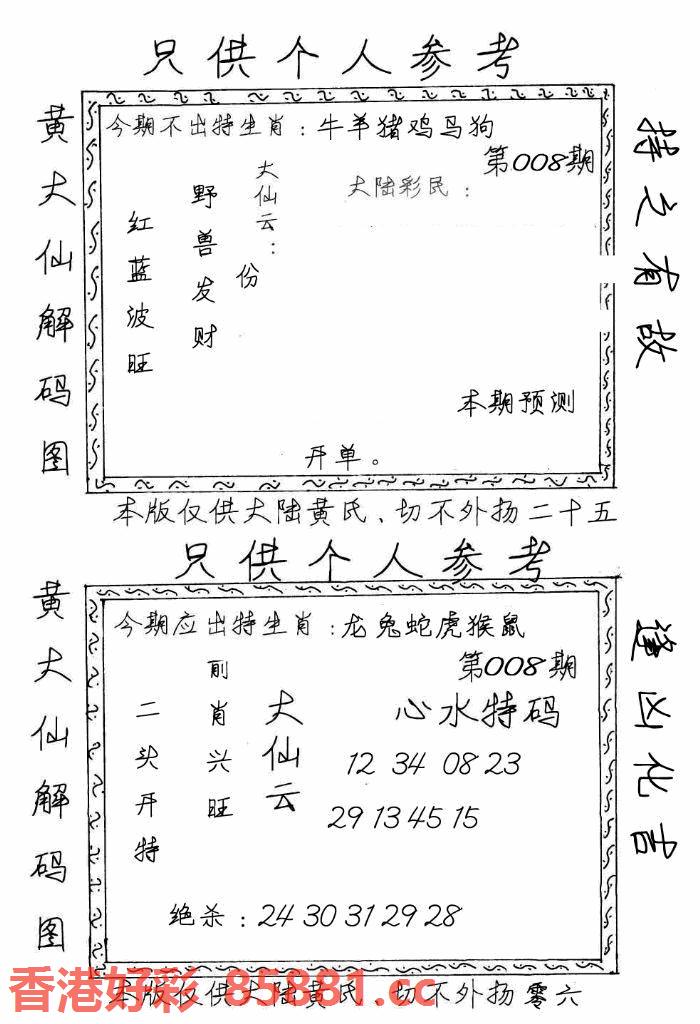 只供个人参考
黄大仙解码图
今期不出特生肖：牛羊猪鸡马狗
第008期
大陆彩民：
大仙云：
份
野兽发财
红蓝波旺
本期预测
开单。
持之有故
本版仅供大陆黄氏、切不外扬二十五
只供个人参考
黄大仙解码图
今期应出特生肖：龙兔蛇虎猴鼠
第008期
心水特码
大仙云
前肖兴旺
二头开特
12 34 08 23
29 13 45 15
绝杀：24 30 31 29 28
逢凶化吉
本版仅供大陆黄氏、切不外扬零六
香港好彩 85881.cc